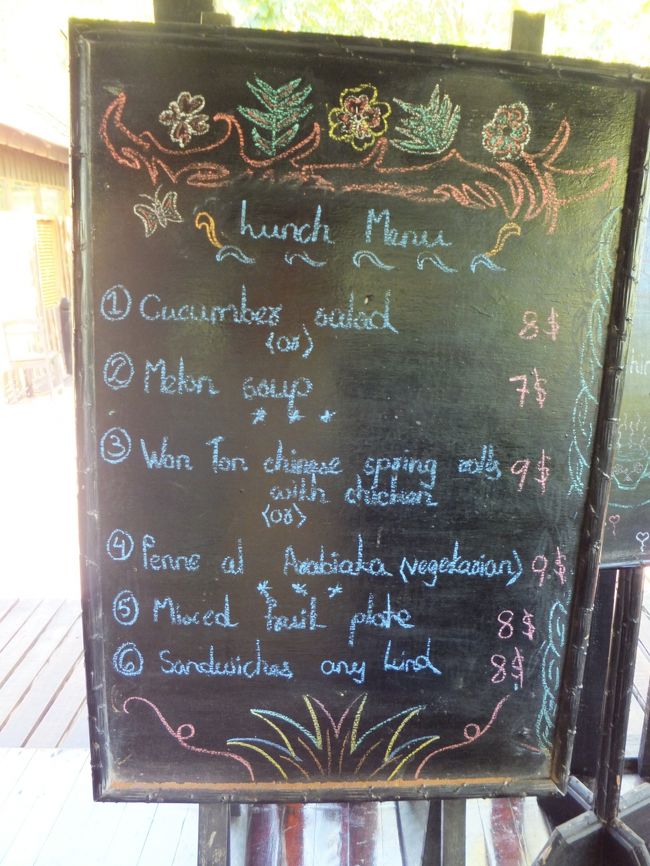 Lunch Menu
① Cucumber salad 8$
(or)
② Melon soup 7$
* * *
③ Wan Ton chinese spring rolls 9$
with chicken
(or)
④ Penne al Arabiaka (Vegetarian) 9$
* * *
⑤ Mixced fruit plate 8$
⑥ Sandwiches any kind 8$